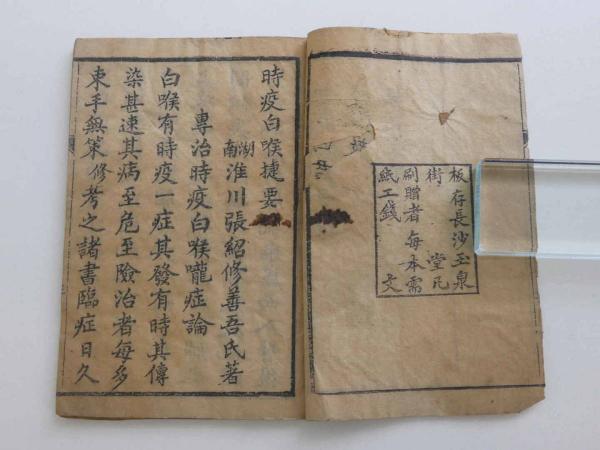 板存長沙玉泉
街　堂凡
刷贈者每本需
紙工錢　文
時疫白喉捷要
湖南淮川張紹修善吾氏著
專治時疫白喉嚨症論
白喉有時疫一症其發有時其傳
染甚速其病至危至險治者每多
束手無策修考之諸書臨症日久